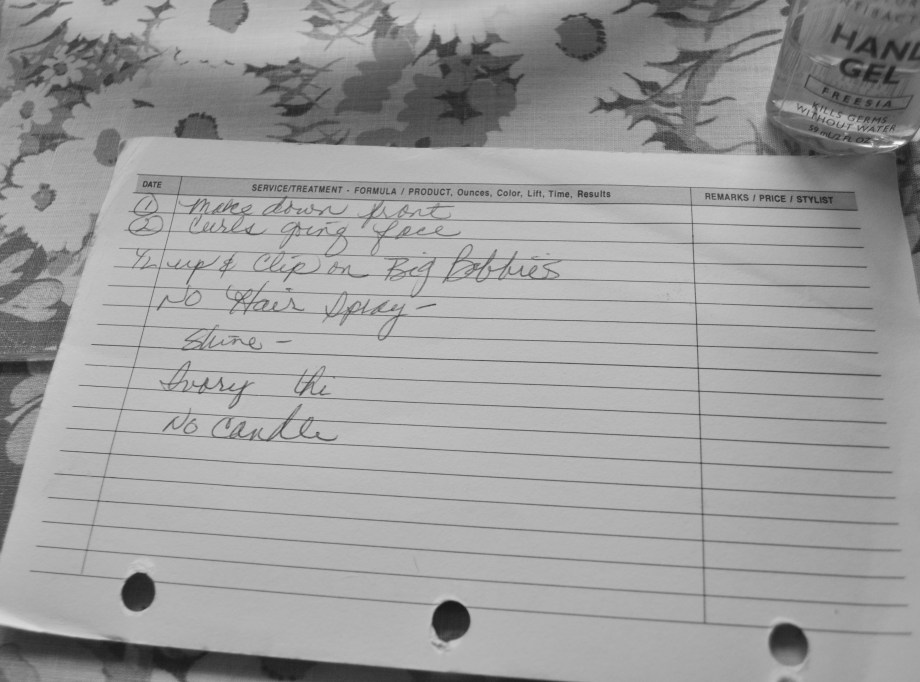 HAND
GEL
FREESIA
KILLS GERMS
WITHOUT WATER
59 mL/2 FL OZ
DATE SERVICE/TREATMENT - FORMULA / PRODUCT, Ounces, Color, Lift, Time, Results REMARKS / PRICE / STYLIST
① Make down front
② Curls going face
1/2 up & Clip on Big Bobbies
No Hair Spray -
Shine -
Ivory thi
No Candle